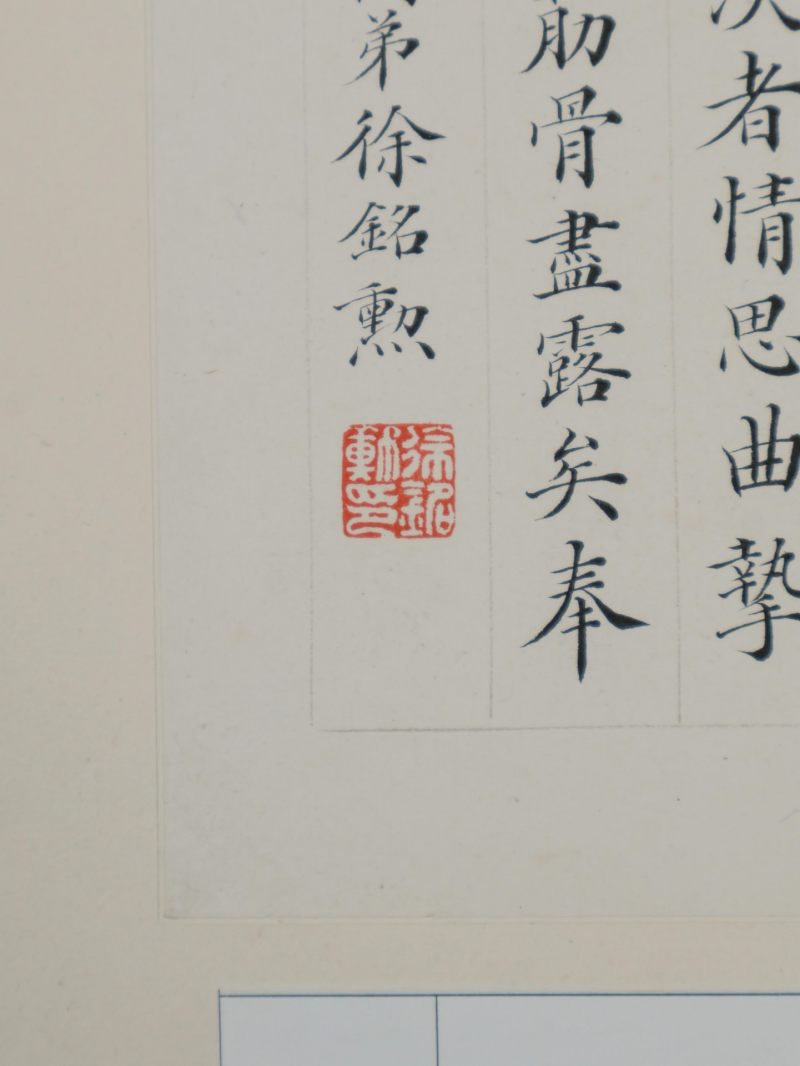 者情思曲摯
筋骨盡露矣奉
弟徐銘勳
徐銘
勳印